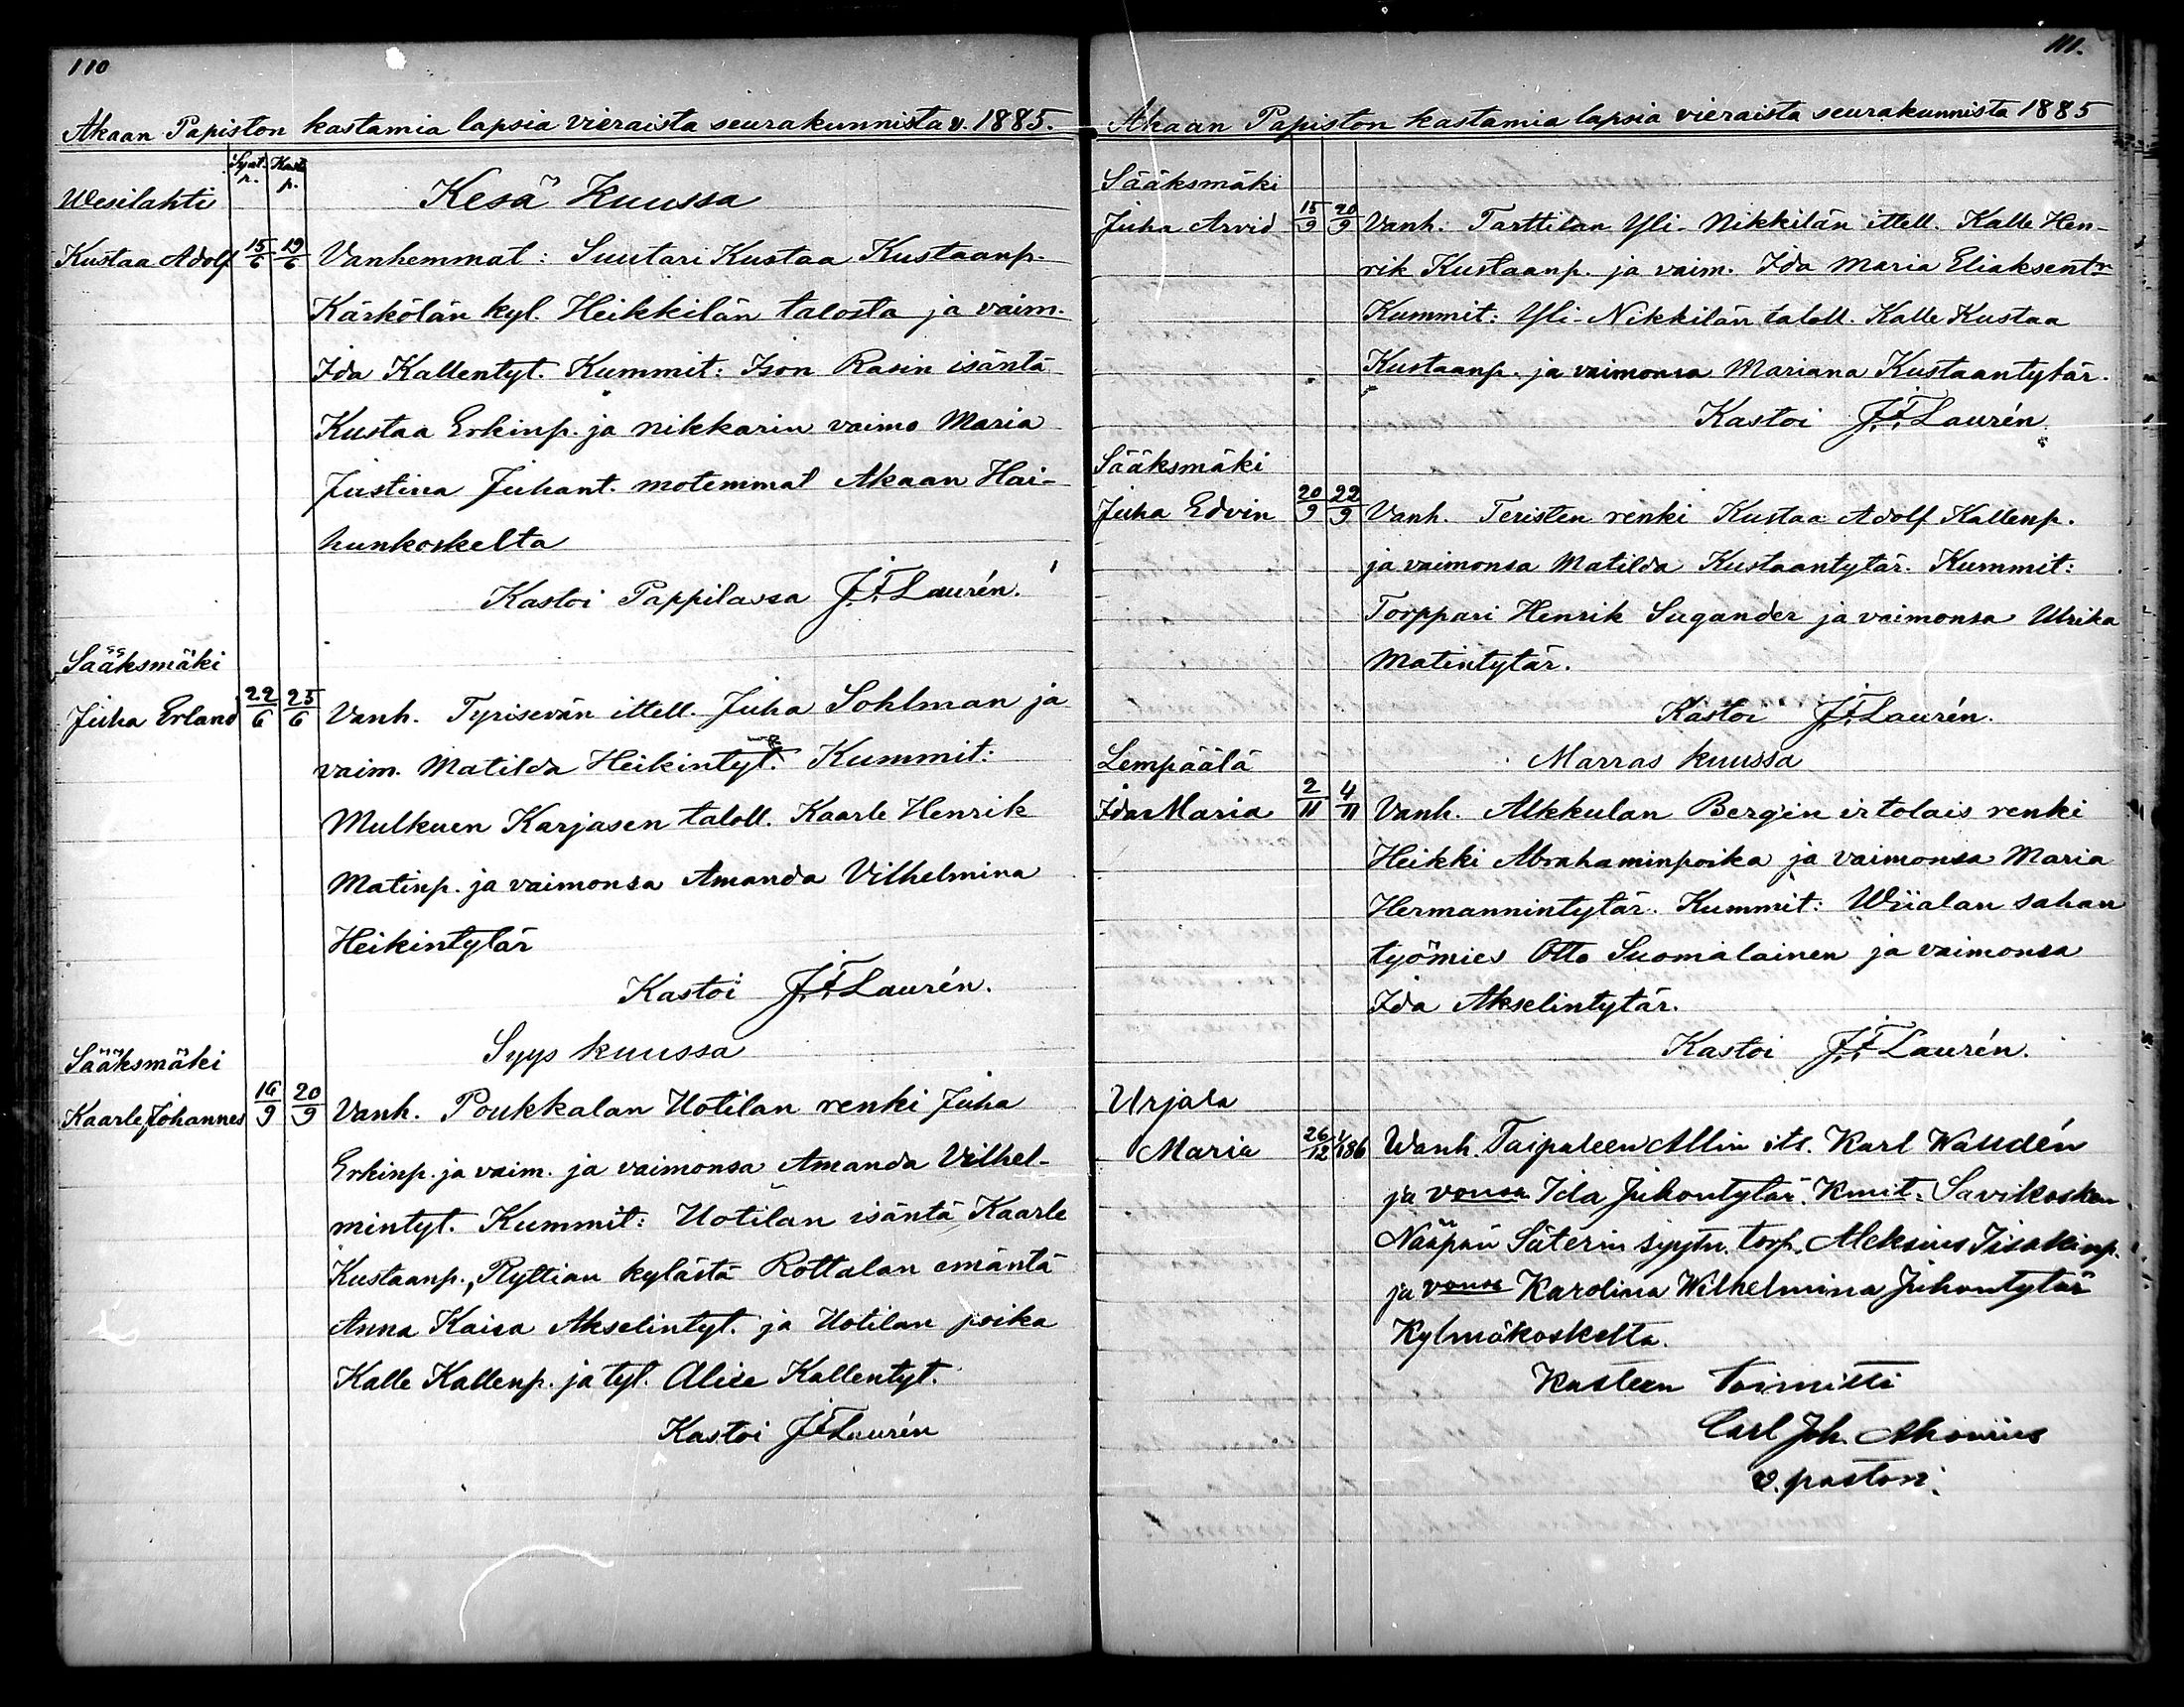 110
Akaan Papiston kastamia lapsia vieraista seurakunnista v. 1885.
Synt. p. Kast. p.
Wesilahti
Kesä Kuussa
Kustaa Adolf 15/6 19/6 Vanhemmat: Suutari Kustaa Kustaanp.
Kärkölän kyl. Heikkilän talosta ja vaim.
Ida Kallentyt. Kummit: Ison Rasin isäntä
Kustaa Erkinp. ja nikkarin vaimo Maria
Justina Juhant. motemmat Akaan Hai-
hunkoskelta
Kastoi Pappilassa J.F. Laurén.
Sääksmäki
Juha Erland 22/6 25/6 Vanh. Tyrisevän ittell. Juha Sohlman ja
vaim. Matilda Heikintyt. Kummit:
Mulkuen Karjasen taloll. Kaarle Henrik
Matinp. ja vaimonsa Amanda Vilhelmina
Heikintytär
Kastoi J.F. Laurén.
Syys kuussa
Sääksmäki
Kaarle Johannes 16/9 20/9 Vanh. Poukkalan Uotilan renki Juha
Erkinp. ja vaim. ja vaimonsa Amanda Vilhel-
mintyt. Kummit: Uotilan isäntä Kaarle
Kustaanp., Ryttian kylästä Rottalan emäntä
Anna Kaisa Akselintyt. ja Uotilan poika
Kalle Kallenp. ja tyt. Alice Kallentyt.
Kastoi J.F. Laurén
111.
Akaan Papiston kastamia lapsia vieraista seurakunnista 1885
Sääksmäki
Juha Arvid 15/9 20/9 Vanh: Tarttilan Yli-Nikkilän ittell. Kalle Hen-
rik Kustaanp. ja vaim. Ida Maria Eliaksentr
Kummit: Yli-Nikkilän taloll. Kalle Kustaa
Kustaanp. ja vaimonsa Mariana Kustaantytär.
Kastoi J.F. Laurén
Sääksmäki
Juha Edvin 20/9 22/9 Vanh. Teristen renki Kustaa Adolf Kallenp.
ja vaimonsa Matilda Kustaantytär. Kummit:
Torppari Henrik Sugander ja vaimonsa Ulrika
Matintytär.
Kastoi J.F. Laurén.
Marras kuussa
Lempäälä
Ida Maria 2/11 4/11 Vanh. Alkkulan Bergin irtolais renki
Heikki Abrahaminpoika ja vaimonsa Maria
Hermannintytär. Kummit: Wiialan sahan
työmies Otto Suomalainen ja vaimonsa
Ida Akselintytär.
Kastoi J.F. Laurén.
Urjala
Maria 26/12 Wanh. Taipaleen Allin its. Karl
ja vonsa Ida Juhontytär. Kmit. Savikosken
Säterin torp. Aleksius Iisakinp.
ja vonsa Karolina Wilhelmina Juhontytär
Kylmäkoskelta.
Kasteen toimitti
Carl Joh.
v. pastori.